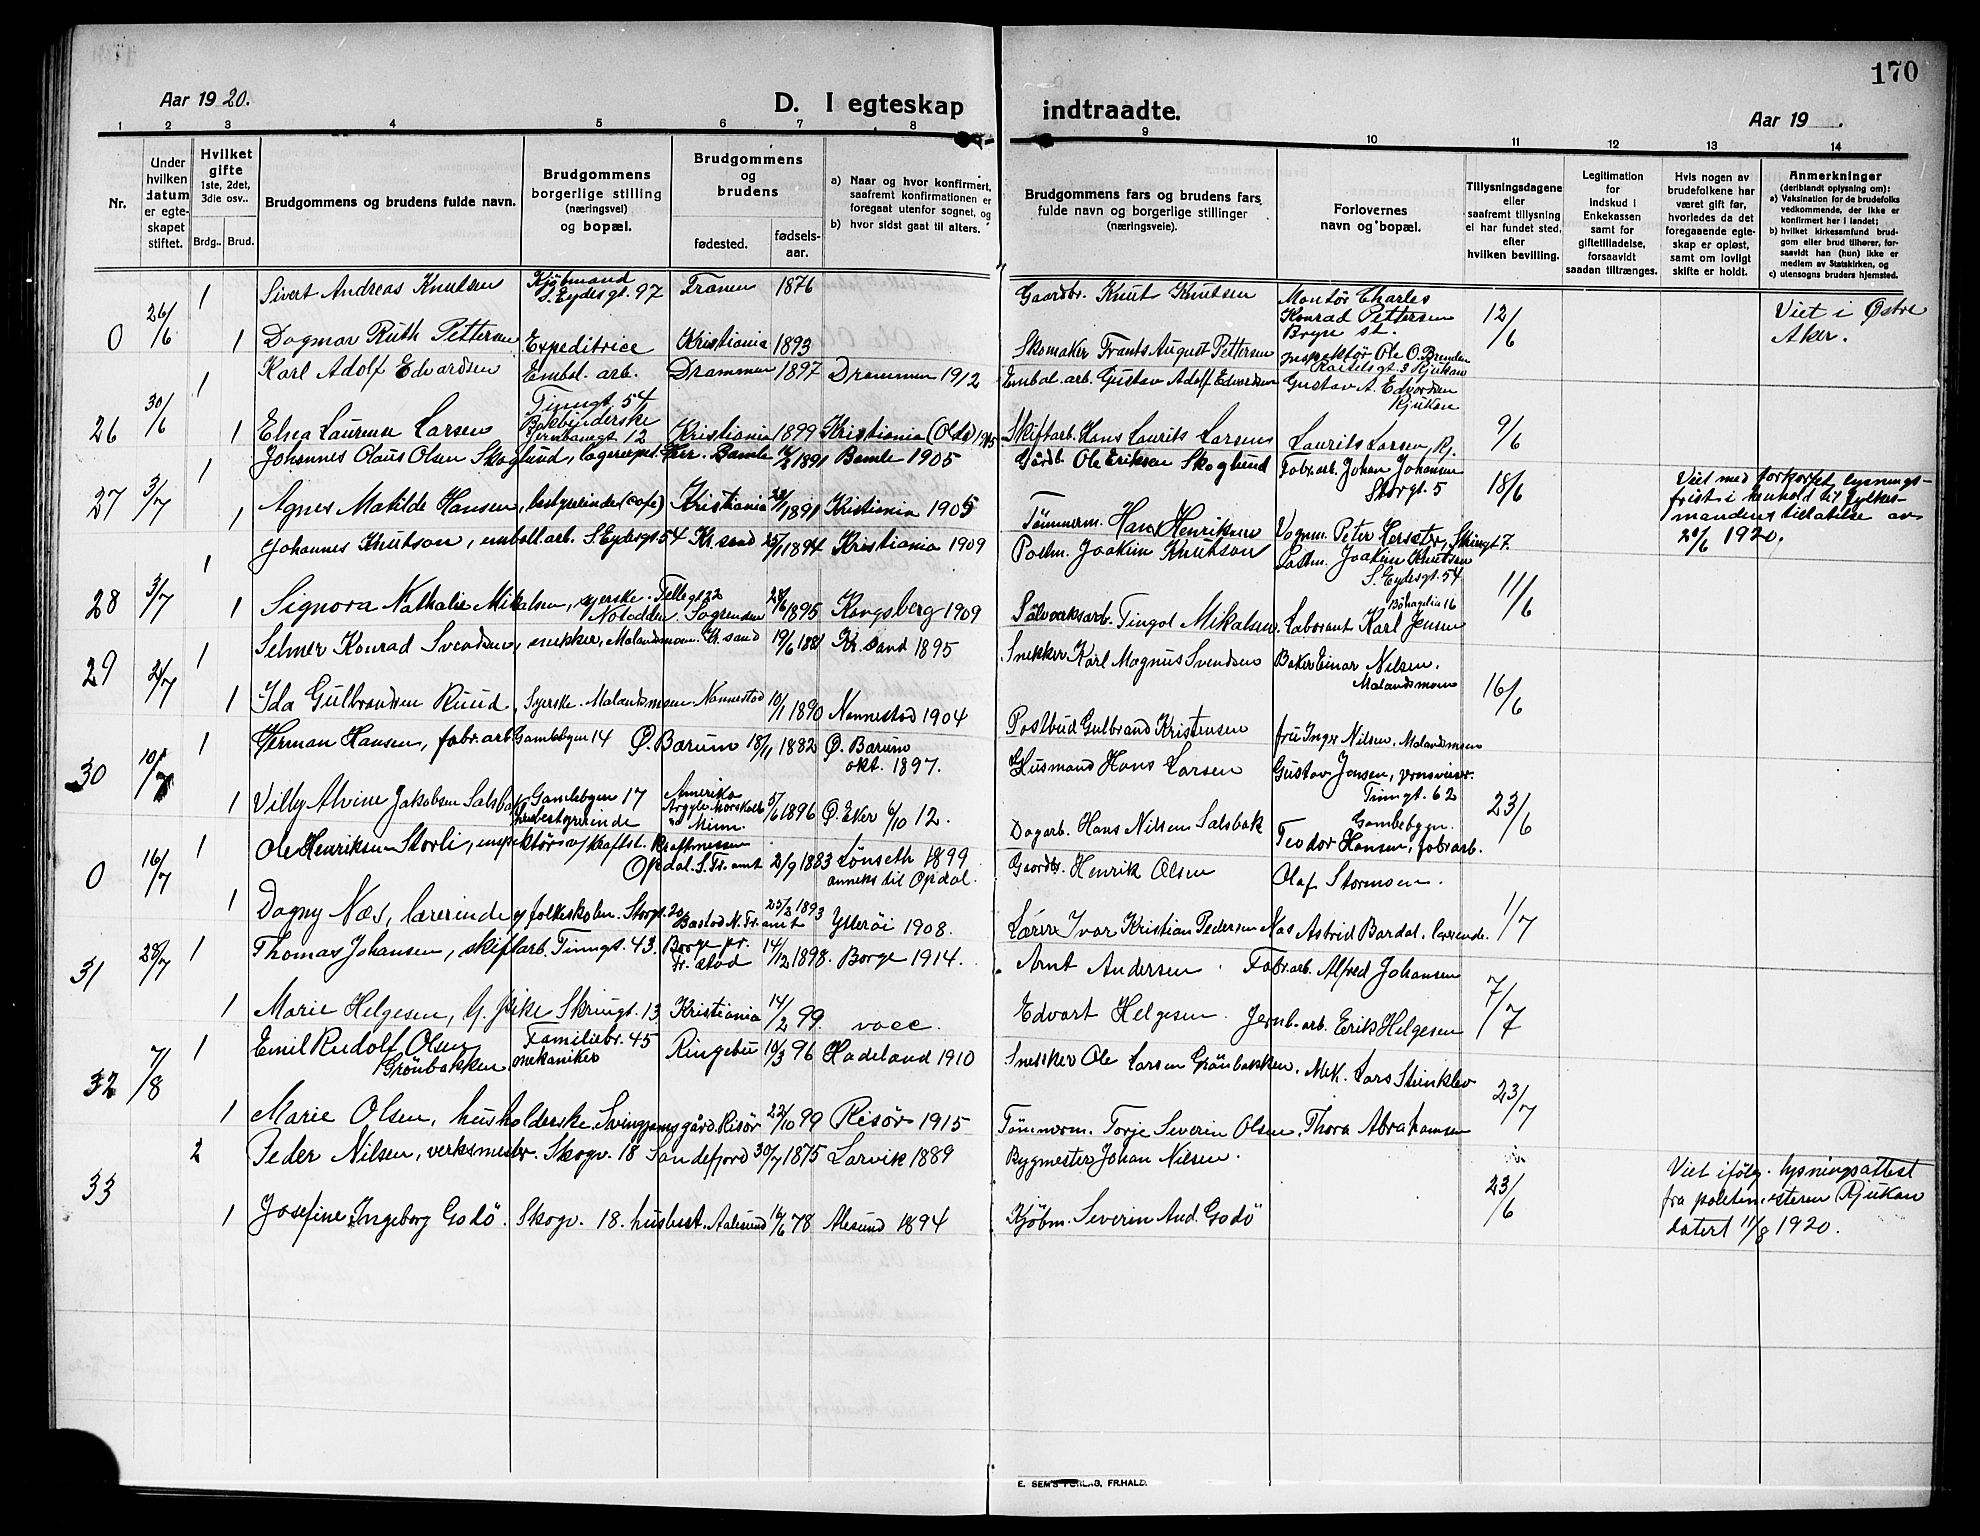 170
Aar 1920.
D. I egteskap indtraadte.
Aar 19 .
1 2 3 4 5 6 7 8 9 10 11 12 13 14
Nr.
Under hvilken datum er egteskapet stiftet.
Hvilket gifte 1ste, 2det, 3die osv..
Brdg. Brud.
Brudgommens og brudens fulde navn.
Brudgommens borgerlige stilling (næringsvei) og bopæl.
Brudgommens og brudens
fødested.
fødselsaar.
a) Naar og hvor konfirmert, saafremt konfirmationen er foregaat utenfor sognet, og
b) hvor sidst gaat til alters.
Brudgommens fars og brudens fars fulde navn og borgerlige stillinger (næringsveie).
Forlovernes navn og bopæl.
Tillysningsdagene eller saafremt tillysning ei har fundet sted, efter hvilken bevilling.
Legitimation for indskud i Enkekassen samt for giftetilladelse, forsaavidt saadan tiltrænges.
Hvis nogen av brudefolkene har været gift før, hvorledes da det foregaaende egteskap er opløst, samt om lovligt skifte er holdt.
Anmerkninger (deriblandt oplysning om):
a) Vaksination for de brudefolks vedkommende, der ikke er konfirmert her i landet;
b) hvilket kirkesamfund brudgom eller brud tilhører, forsaavidt han (hun) ikke er medlem av Statskirken, og
c) utensogns bruders hjemsted.
0 26/6 1 Sivert Andreas Knutsen Kjøbmand S. Eydesgt. 97 Tranen 1876 Gaardbr. Knut Knutsen Montør Charles Konrad Pettersen Bryn st. 12/6 Viet i Østre Aker.
1 Dagmar Ruth Pettersen Expeditrice Kristiania 1893 Skomaker Frants August Pettersen Inspektør Ole O. Brenden 3 Rjukan
26 30/6 1 Karl Adolf Edvardsen Embal. arb. Tinngt. 54 Drammen 1897 Drammen 1912 Embal. arb. Gustav Adolf Edvardsen Gustav A. Edvardsen Rjukan 9/6
1 Elsea Laurense Larsen Bokbinderske Jernbanegt 12 Kristiania 1899 Kristiania (Oslo) 1915 Skiftarb. Hans Laurits Larsen Laurits Larsen, Rj.
27 3/7 1 Johannes Olaus Olsen Skoglund, Bamle 1891 Bamle 1905 Gårdb. Ole Eriksen Skoglund Fabr.arb. Johan Johansen Storgt. 5 18/6 Viet med forkortet lysningsfrist i henhold til fylkesmandens tillatelse av 20/6 1920.
1 Agnes Matilde Hansen, bestyrerinde (cafe) Kristiania 1891 Kristiania 1905 Tømmerm. Hans Henriksen Vognm. Peter Herseter, Skriugt 7.
28 3/7 1 Johannes Knutson, emball. arb. S. Eydesgt. 54 Kr.sand 25/1 1894 Kristiania 1909 Postm. Joakim Knutson Postm. Joakim Knutson S. Eydesgt. 54 11/6
1 Signora Nathalie Mikalsen, syerske. Tellegt 22 Notodden Sogrenden 28/6 1895 Kongsberg 1909 Sölvverksarb. Tingol Mikalsen. Laborant Karl Jensen Bøhagelia 16
29 2/7 1 Selmer Konrad Svendsen, snekker, Mælandsmoen. Kr. sand 19/6 1881 Kr. sand 1895 Snekker Karl Magnus Svendsen Baker Einar Nilsen. Mælandsmoen 16/6
1 Ida Gulbrandsen Ruud, Syerske. Mælandsmoen. Nannestad 10/1 1890 Nannestad 1904 Postbud Gulbrand Kristensen fru Inger Nilsen, Mælandsmoen
30 10/7 1 Herman Hansen, fabr. arb. Gamlebyen 14 Ø. Bærum 18/11 1882 Ø. Bærum okt. 1897. Husmand Hans Larsen Gustav Jensen, Tinngt. 62 23/6
1 Villy Alvine Jakobsen Salsbak Gamlebyen 17 husbestyrerinde Amerika Argyle Minn. 5/6 1896 Ø. Eker 6/10 12. Dagarb. Hans Nilsen Salsbak Teodor Hansen, fabr arb. Gamlebyen.
0 16/7 1 Ole Henriksen Storli, inspektør v/ kraftst. Kraftmessen Opdal. S. Tr. amt 2/9 1883 Lønseth 1899 anneks til Opdal. Gaardbr. Henrik Olsen Olaf Stormoen. 1/7
1 Dagny Næs, lærerinde v/ folkeskolen. Storgt. 20 N. Tr. amt 25/2 1893 Ytterøi 1908. Lærer Ivar Kristian Pedersen Næs Astrid Bardal, lærerinde.
31 28/7 1 Thomas Johansen, skiftarb. Tinngt. 43. Borge pr. Fr. stad 14/12 1898. Borge 1914. Arnt Andersen. Fabr. arb. Alfred Johansen 7/7
1 Marie Helgesen, Skriugt. 13 Kristiania 14/2 99 vacc. Edvart Helgesen. Jernb. arb. Erik Helgesen
32 7/8 1 Emil Rudolf Olsen Grönbakken Familiebr. 45 mekaniker Ringebu 10/3 96 Hadeland 1910 Snekker Ole Larsen Grönbakken. Mek. Lars Steinklev 23/7
1 Marie Olsen, husholderske. Risör 22/10 99 Risör 1915 Tömmerm. Torje Severin Olsen. Thora Abrahamsen
33 2 Peder Nilsen, verksmester. Skogv. 18 Sandefjord 30/7 1875 Larvik 1889 Bygmester Johan Nilsen. 23/6 Viet ifölg. lysningsattest fra politimesteren Rjukan datert 11/8 1920.
1 Josefine Ingeborg Godö. Skogv. 18. husbest. Aalesund 16/6 78 Alesund 1894 Kjöbm. Severin And. Godö
E. SEM'S FORLAG, FR.HALD.